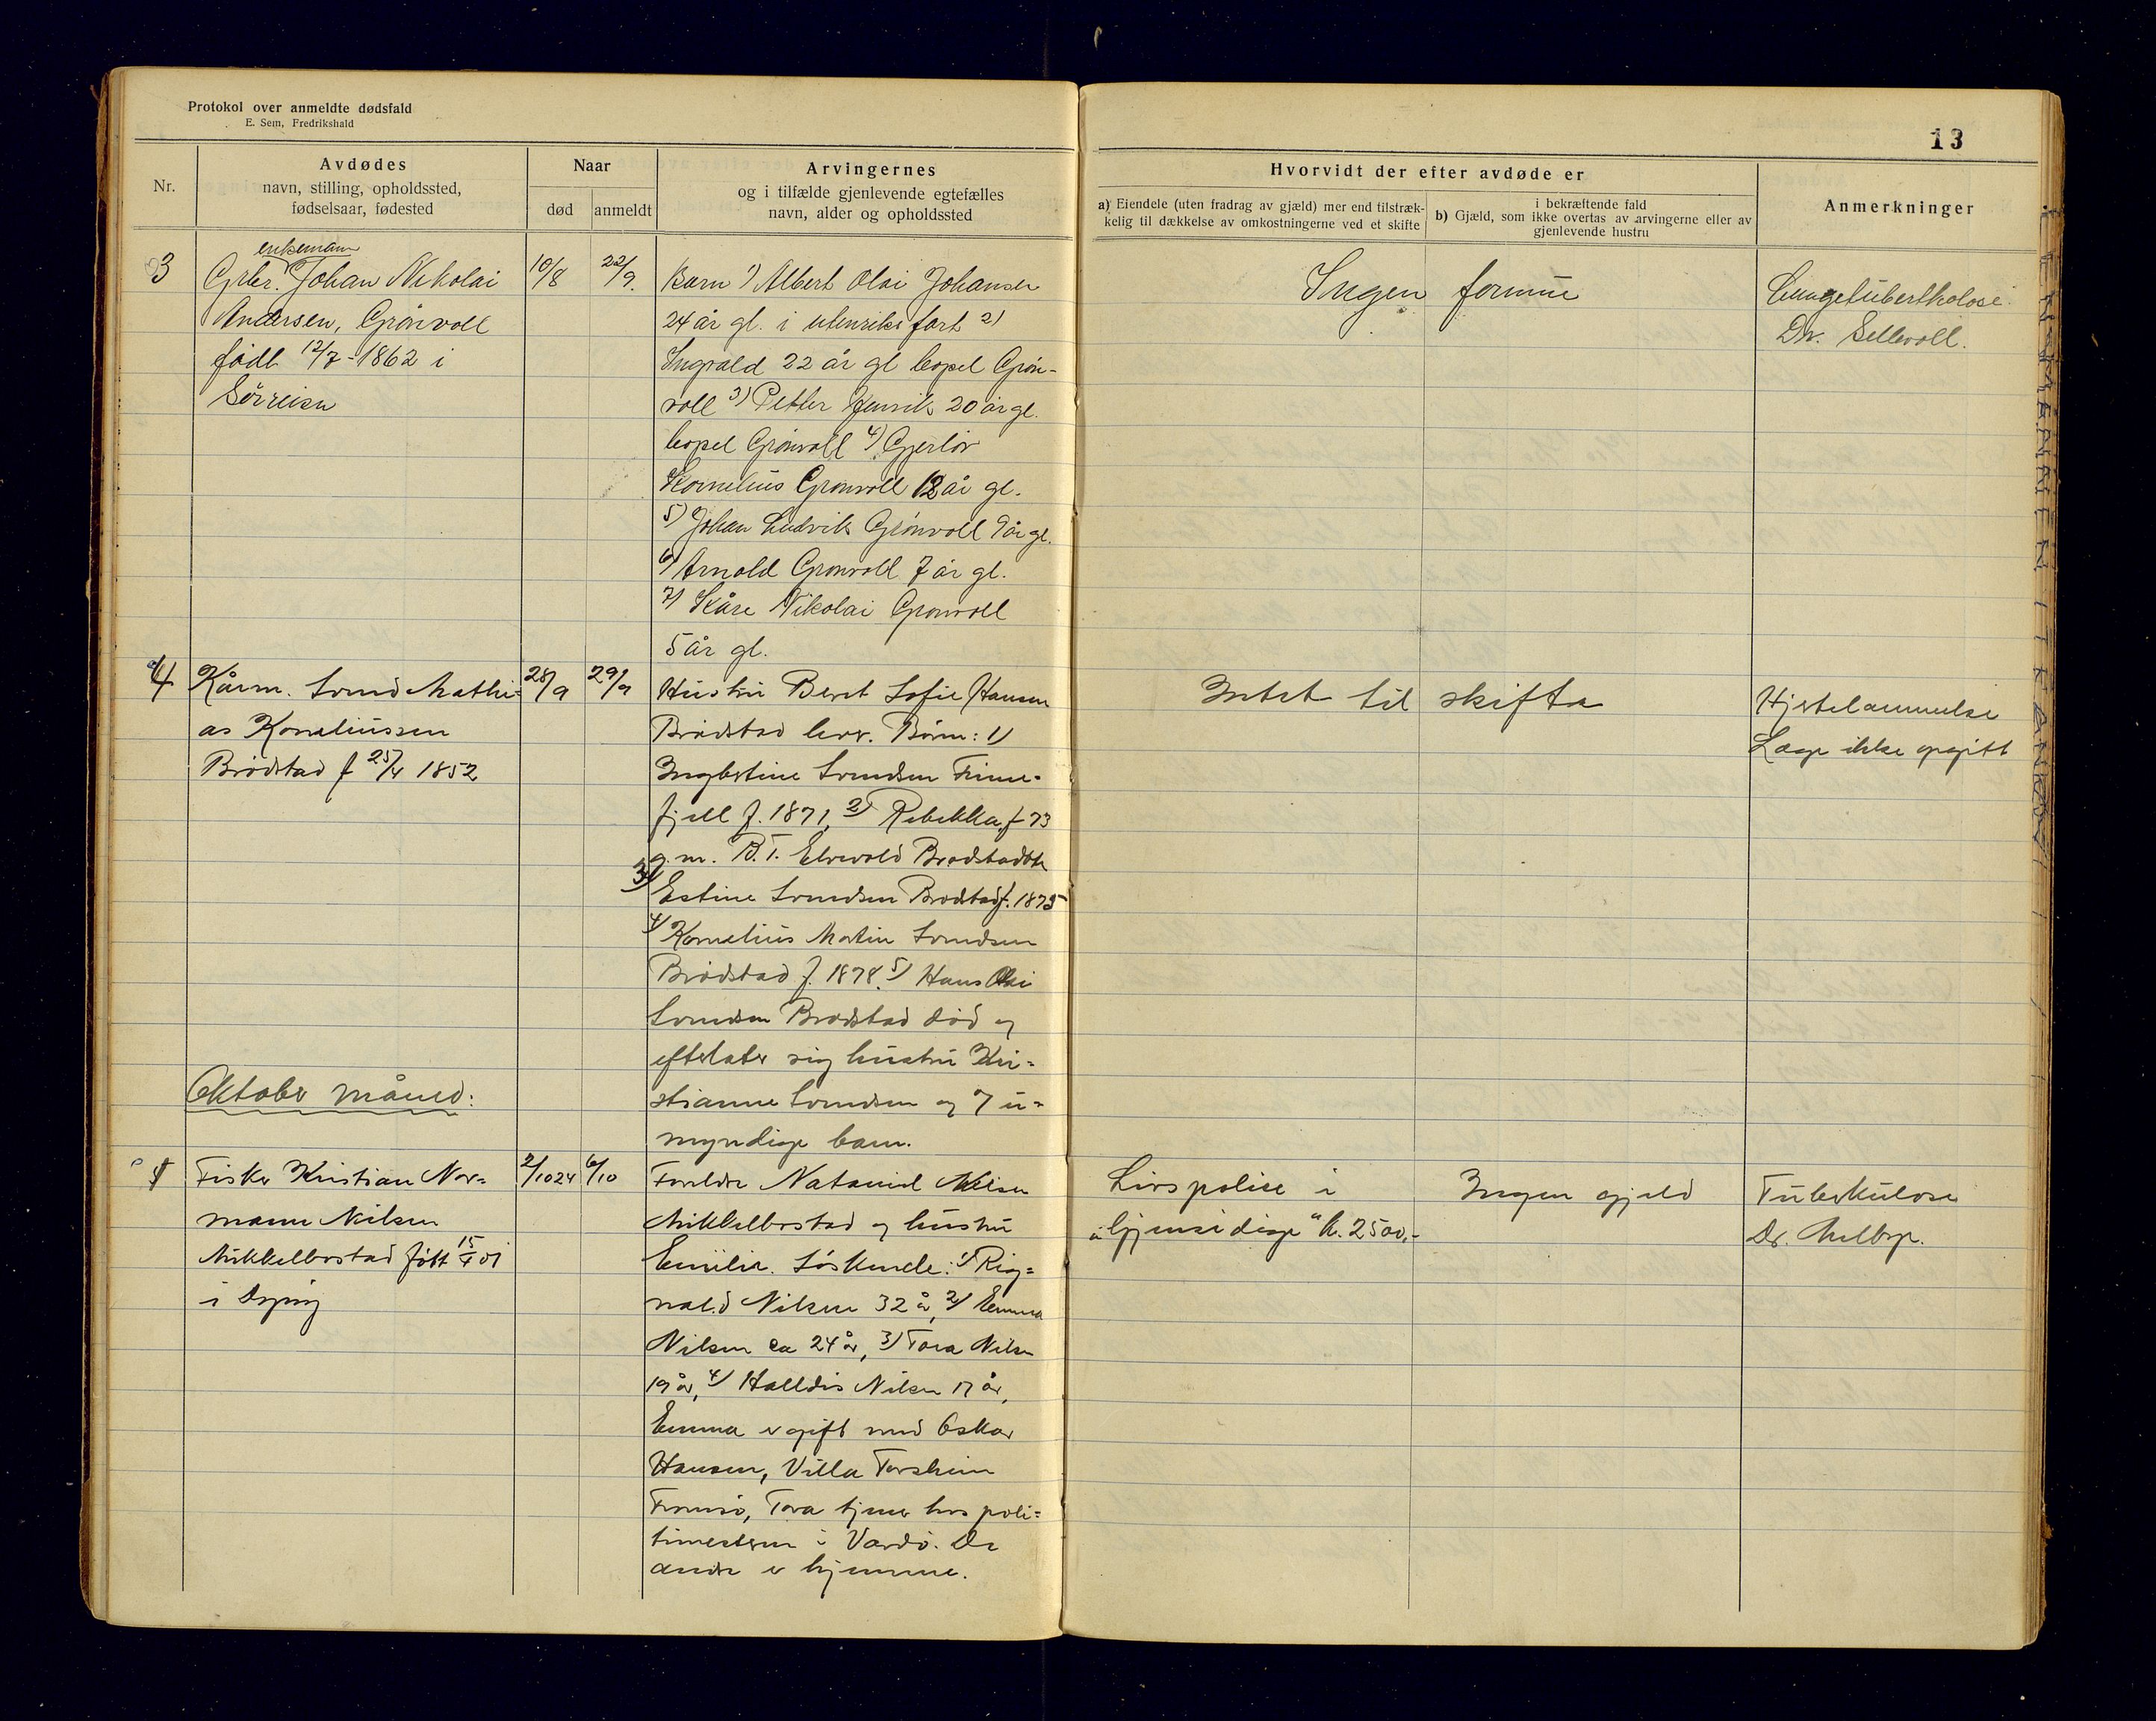 Protokol over anmeldte dødsfald
E. Sem, Fredrikshald
13
Nr.
Avdødes
navn, stilling, opholdssted,
fødselsaar, fødested
Naar
død
anmeldt
Arvingernes
og i tilfælde gjenlevende egtefælles
navn, alder og opholdssted
Hvorvidt der efter avdøde er
a) Eiendele (uten fradrag av gjæld) mer end tilstræk-
kelig til dækkelse av omkostningerne ved et skifte
i bekræftende fald
b) Gjæld, som ikke overtas av arvingerne eller av
gjenlevende hustru
Anmerkninger
3
enkemann
Grbr. Johan Nikolai
Andersen, Grønvoll
født 12/7-1862 i
Sørreisa
10/8
22/9.
Barn 1) Albert Olai Johansen
24 år gl. i utenriks fart 2)
Ingvald 22 år gl bopel Grøn-
voll 3) Petter Henrik 20 år gl.
bopel Grønvoll 4) Gjerløv
Kornelius Grønvoll 12 år gl.
5) Johan Ludvik Grønvoll 9 år gl.
6) Arnold Grønvoll 7 år gl.
7) Kåre Nikolai Grønvoll
5 år gl.
Ingen formue
Lungetuberkolose.
Dr. Sellevoll.
4
Kårm. Lornd Mathi=
as Korneliussen
Brødstad f 25/4 1852
28/9
29/9
Hustru Beret Sofie Hansen
Brødstad lever. Børn: 1)
Ingbertine Lorndsen Finne-
fjell f. 1871, 2) Rebekka f 73
g. m. B. T. Elvevold Brødstadbt
3) Estine Lorndsen Brødstad f. 1875
4) Kornelius Martin Lorndsen
Brødstad f. 1878. 5) Hans Olai
Lorndsen Brødstad død og
efterlater sig hustru Kri=
stianne Lorndsen og 7 u=
myndige barn.
Intet til skifte
Hjertelammelse
Læge ikke opgitt
Oktober måned:
1
Fisker Kristian Nor=
mann Nilsen
Mikkelbostad født 15/4 01
i Dyrøy
2/10 24
6/10
Foreldre Nataniel Nilsen
Mikkelbostad og hustru
Emilie. Søskende: 1) Rig=
nald Nilsen 32 år, 2) Emma
Nilsen ca 24 år, 3) Tora Nilsen
19 år, 4) Halldis Nilsen 17 år,
Emma er gift med Oskar
Hansen, Villa Forsheim
Tromsø, Tora tjener hos poli=
timesteren i Vardø. De
andre er hjemme.
Livspolise i
"Gjensidige" kr. 2500,-
Ingen gjeld
Tuberkulose